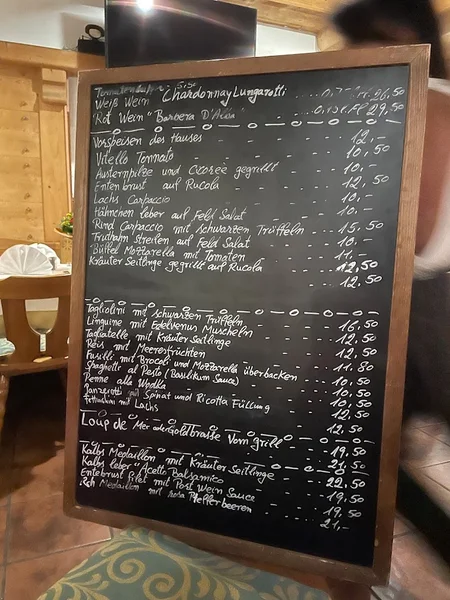 Weiß Wein Chardonnay Lungarotti 26,50
Rot Wein "Barbera D'Alba" 29,50
Vorspeisen des Hauses 12,-
Vitello Tonnato 10,50
Austernpilze und Cicoree gegrillt 10,-
Entenbrust auf Rucola 12,50
Lachs Carpaccio 10,-
Hähnchen leber auf Feld Salat 10,-
Rind Carpaccio mit schwarzen Trüffeln 15,50
Truthahn Streifen auf Feld Salat 10,-
Büffel Mozzarella mit Tomaten 11,-
Kräuter Seitlinge gegrillt auf Rucola 12,50
12,50
Tagliolini mit schwarzen Trüffeln 16,50
Linguine mit Edelvenus Muscheln 12,50
Tagliatelle mit Kräuter Seitlinge 12,50
Reis mit Meeresfrüchten 11.80
Fusilli mit Brocoli und Mozzarella überbacken 10,50
Spaghetti al Pesto (Basilikum Sauce) 10,50
Penne alla Wodka 10,50
Panzerotti mit Spinat und Ricotta Füllung 12,50
Fettuchini mit Lachs 12,50
Loup de Mer oder Goldbrasse Vom grill 19,50
Kalbs Medaillon mit Kräuter Seitlinge 21,50
Kalbs leber "Aceto Balsamico 22,50
Entebrust filet mit Port Wein Sauce 19,50
Reh Medaillon mit rosa Pfefferbeeren 19,50
21,-